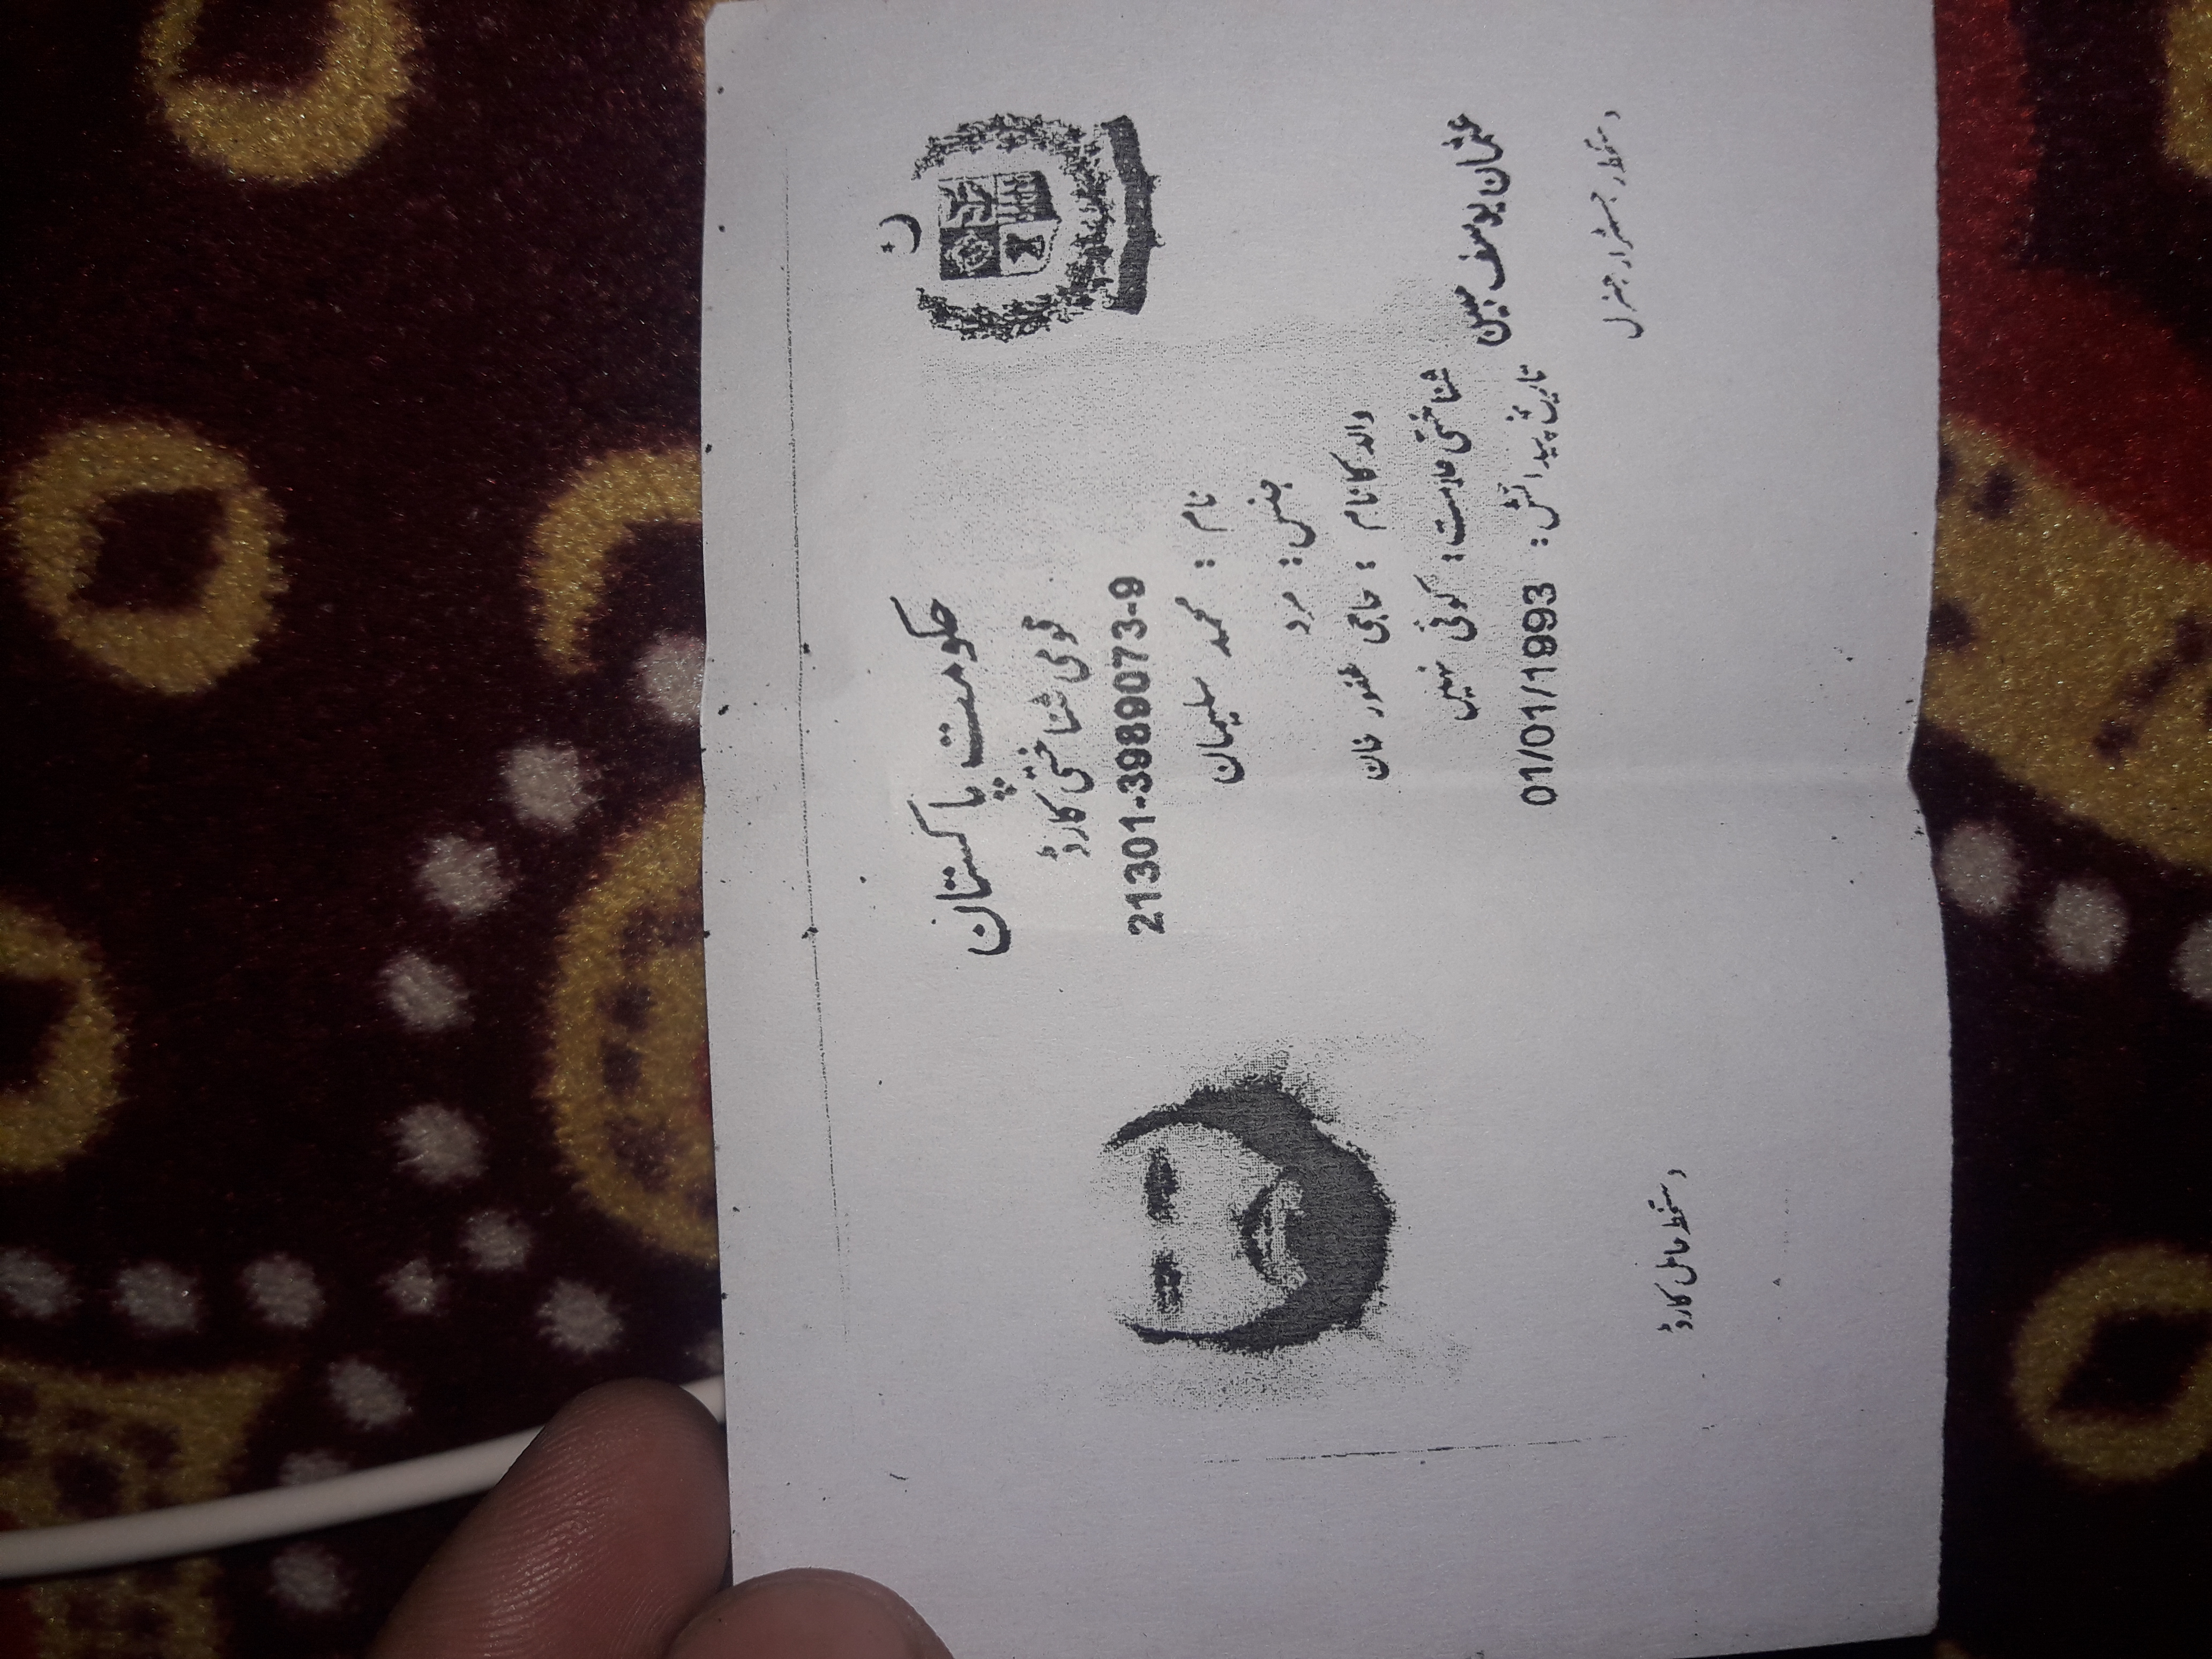 حکومت پاکستان
قومی شناختی کارڈ
21301-3989073-9
نام : محمد سلیمان
جنس : مرد
والد کا نام : حاجی غفور خان
شناختی علامت : کوئی نہیں
تاریخ پیدائش : 01/01/1993
عثمان یوسف مبین
دستخط رجسٹرار جنرل
دستخط حامل کارڈ